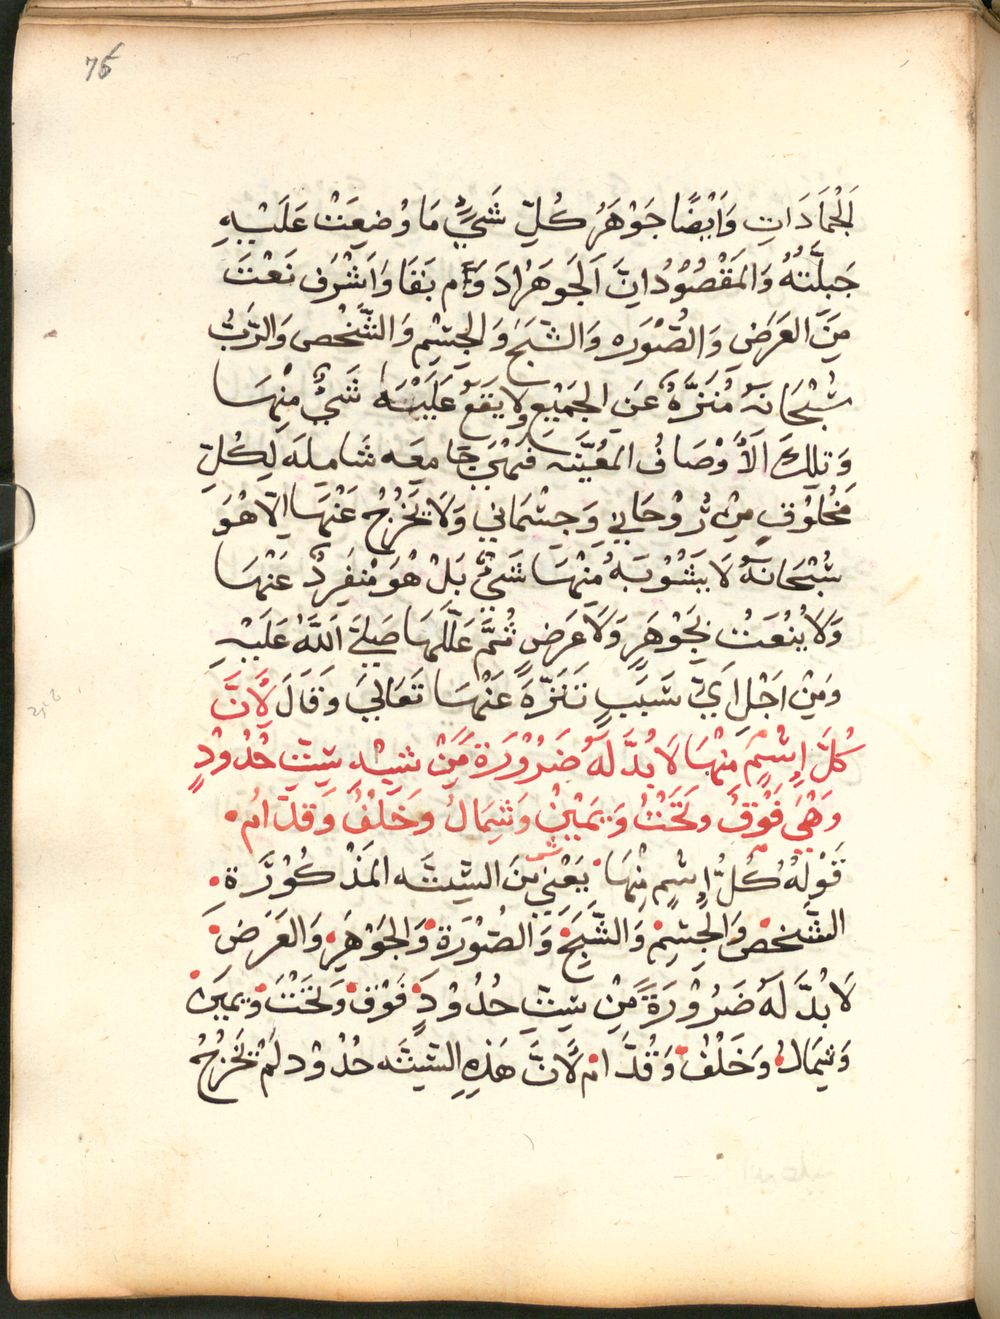 75
الْجَمَادَاتِ وَاَيْضًا جَوْهَرُ كُلِّ شَيٍّ مَا وُضِعَتْ عَلَيْهِ
جَبِلَّتُهُ وَالمَقْصُوْدُ اِنَّ اَلجَوهَرْ اَدْوَم بَقَا وَاَشْرَف نَعْتَ
مِنَ العَرَضِ وَالصُّوْرَه وَالشَّبَحَ وَالجِسْمِ وَالشَّخْص وَالرَّبُ
سُبْحَانَهُ مُنَزَّهٌ عَنِ الجَمِيْعِ ولاَ يَقَعُ عَلَيْهَ شَيٌ مِنْهَا
وَتِلِكَ اَلأَوْصَافُ المعُيَّنَه فَهْيَ جَامِعَه شَامِلَه لِكُلِّ
مَخْلُوْقٍ مِنْ رُوْحَانِي وَجِسْمَانِي وَلَا يَخْرُجُ عَنْهَا اِلّا هُوَ
سُبْحَانَهُ لاَ يَشُوْبَهُ مِنْهَا شَيٌ بَلْ هُوَ مُنْفَرِدٌ عَنْهَا
وَلاَ يُنْعَتُ بِجَوْهَرٍ وَلاَ عَرَضٍ ثُمَّ عَلَّلَهَا صَلّىَ اَللهُ عَلَيْهِ
وَمِنْ اَجْلِ اَيّ سَبَبٍ تَنَزَّهَ عَنْهَا تَعَالىَ وَقَالَ لأَنَّ
كُلَّ إِسْمٍ مِنْهَا لاَ بُدَّ لَهُ ضَرُوْرَةً مِنْ سِتِّ حُدُوْدٍ
وَهْيَ فَوْقُ وَتَحْتُ وَيَمِيْنُ وَشِمَالُ وَخَلْفُ وَقدّامُ •
قَوْلَهُ كُلُّ إِسْمٍ مِنْهَا • يَعْنِي مِنَ السِتَّه المَذْكُوْرَةِ •
الشَّخصِ وَالجِسْمِ • وَالشَّبَحِ • وَالصُوْرَة • وَالجَوْهَرِ • وَالعَرَضِ •
لاَ بُدَّ لَهُ ضَرُوْرَةً مِنْ سِتِّ حُدُوْدٍ • فَوْقُ • وَتَحْتَ • وَيَمِينَ •
وَشِمَالُ • وَخَلْفُ • وَقُدَّام • لأَنَّ هَذِهِ السِتَّه حُدُوْد لَمْ تَخْرُجُ